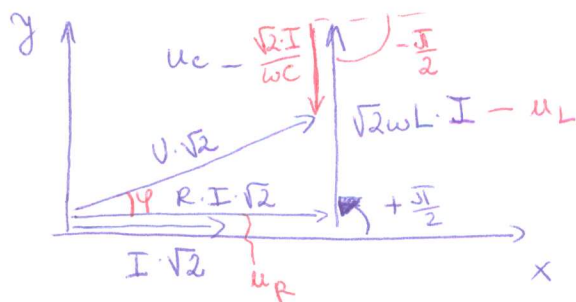 y
u_C – √2·I/ωC
– π/2
√2ωL·I – u_L
U·√2
φ
R·I·√2
+ π/2
I·√2
u_R
x